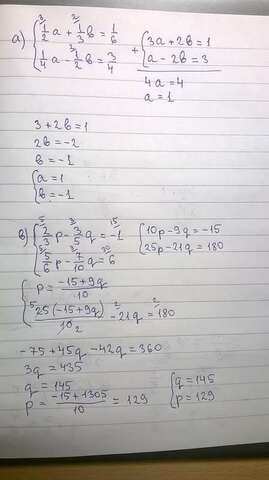 а) { 3/1/2 a + 2/1/3 b = 1/6 + { 3a + 2b = 1
{ 1/4 a - 3/1/2 b = 3/4 { a - 2b = 3
4a = 4
a = 1
3 + 2b = 1
2b = -2
b = -1
{ a = 1
{ b = -1
в) { 5/2/3 p - 3/3/5 q = 15/-1 { 10p - 9q = -15
{ 5/6 p - 7/10 q = 6 { 25p - 21q = 180
{ p = (-15 + 9q)/10
{ 5 25(-15 + 9q)/10 2 - 21q 2 = 180 2
-75 + 45q - 42q = 360
3q = 435
q = 145
p = (-15 + 1305)/10 = 129
{ q = 145
{ p = 129